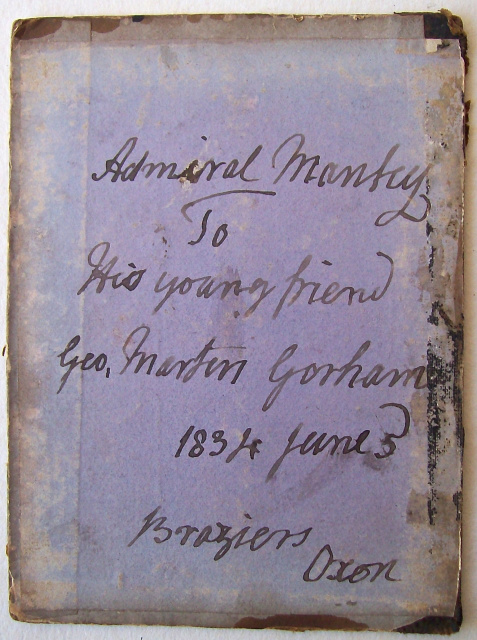 Admiral Manby
To
His young friend
Geo, Martin Gorham
1834 June 3
Braziers
Oxon